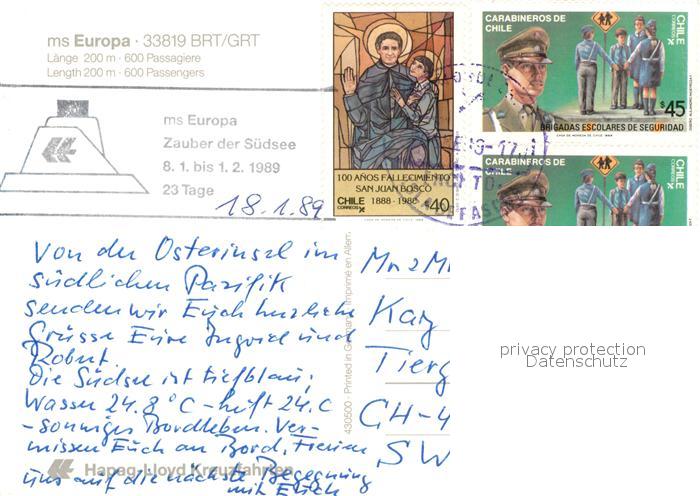 ms Europa · 33819 BRT/GRT
Länge 200 m · 600 Passagiere
Length 200 m · 600 Passengers
ms Europa
Zauber der Südsee
8. 1. bis 1. 2. 1989
23 Tage
18.1.89
100 AÑOS FALLECIMIENTO
SAN JUAN BOSCO
CHILE 1888 - 1988
CORREOS $40
CARABINEROS DE
CHILE
CHILE
CORREOS
$45
BRIGADAS ESCOLARES DE SEGURIDAD
CASA DE MONEDA DE CHILE
CARABINEROS DE
CHILE
CHILE
CORREOS
Von der Osterinsel im
südlichen Pazifik
senden wir Euch herzliche
Grüsse Eure Ingrid und
Robert.
Die Südsee ist tiefblau,
Wasser 24.8°C - Luft 24.C
- sonniges Bordleben. Ver-
missen Euch an Bord, freuen
uns auf die nächste Begegnung
mit Euch
Hapag-Lloyd Kreuzfahrten
430500 · Printed in Germany/Imprimé en Allem.
Mr + M
Kar
Tierg
CH-4
SW
privacy protection
Datenschutz